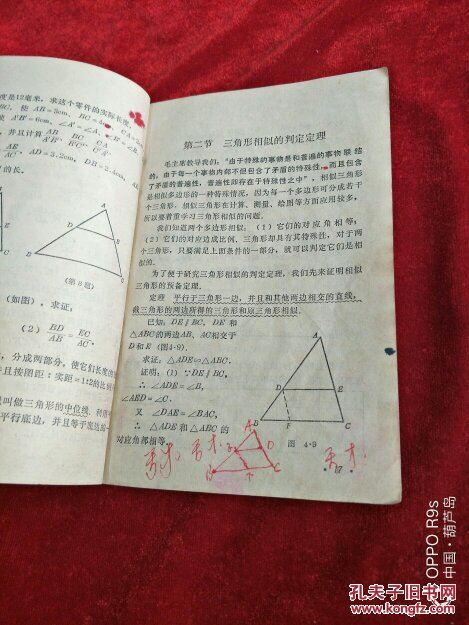 度是12毫米，求这个零件的实际长度。
BC，使 AB=3cm, BC=4cm, CA=
A′B′=6cm, ∠A′=∠A, ∠B′=∠B,
，并且计算 AB/A′B′, BC/B′C′, CA/C′A′
AE/AC, AD=3.2cm, DB=2.4cm, AE
的长。
(第8题)
(如图)，求证：
(2) BD/AB=EC/AC.
，分成两部分，使它们长度的
并且按图距：实距=1:2的比例
叫做三角形的中位线，利用
平行底边，并且等于底边的一
第二节 三角形相似的判定定理
毛主席教导我们：“由于特殊的事物是和普遍的事物联结
的，由于每一个事物内部不但包含了矛盾的特殊性，而且包含
了矛盾的普遍性，普遍性即存在于特殊性之中”，相似三角形
是相似多边形的一种特殊情况，因为每一个多边形可分成若干
个三角形。相似三角形在计算、测量、绘图等方面应用较多，
所以要着重学习三角形相似的问题。
我们知道两个多边形相似，(1) 它们的对应角相等；
(2) 它们的对应边成比例，三角形却具有其特殊性，对于两
个三角形，只要满足上面条件的一部分，就可以判定它们是相
似的。
为了便于研究三角形相似的判定定理，我们先来证明相似
三角形的预备定理。
定理 平行于三角形一边，并且和其他两边相交的直线，
截三角形的两边所得的三角形和原三角形相似。
已知：DE∥BC, DE 和
△ABC的两边AB、AC相交于
D和E (图4·9).
求证：△ADE∽△ABC.
证明：(1) ∵DE∥BC,
∴ ∠ADE=∠B,
∠AED=∠C.
又 ∠DAE=∠BAC,
∴ △ADE和△ABC的
对应角都相等。
A
D
E
B
F
C
图 4·9
OPPO R9s
中国·葫芦岛
孔夫子旧书网
www.kongfz.com